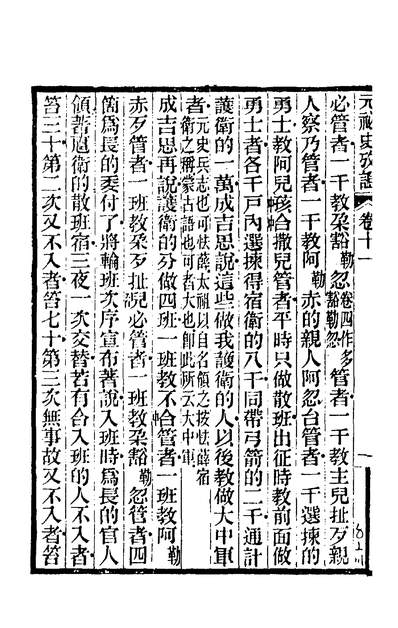 元祕史攷證 卷十一 一
必管者一千教朶豁勒忽卷四作多豁勒忽管者一千教主兒扯歹親
人察乃管者一千教阿勒赤的親人阿忽台管者一千選揀的
勇士教阿兒孩合撒兒管者平時只做散班出征時教前面做
勇士者各千戸內選揀得宿衛的八千同帶弓箭的二千通計
護衛的一萬成吉思說這些做我護衛的人以後教做大中軍
者元史兵志也可怯薛太祖以自名領之按怯薛宿衛之稱蒙古語也可者大也卽此所云大中軍
成吉思再說護衛的分做四班一班教不合管者一班教阿勒
赤歹管者一班教朶歹扯兒必管者一班教朶豁勒忽管者四
箇爲長的委付了將輪班次序宣布著說入班時爲長的官人
領著扈衛的散班宿三夜一次交替若有合入班的人不入者
笞三十第二次又不入者笞七十第三次無事故又不入者笞